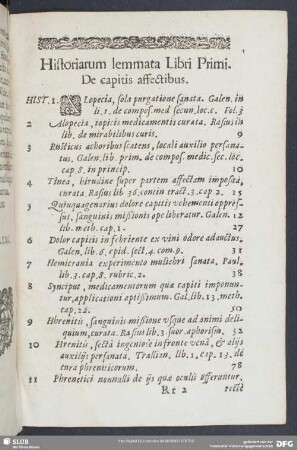 Historiarum lemmata Libri Primi.
De capitis affectibus.
HIST. 1. Alopecia, sola purgatione sanata. Galen. in
li. 1. de compos. med secun. loc. c. Fol. 3
2 Alopecia, topicis medicamentis curata. Rasus in
lib. de mirabilibus curis. 9
3 Rusticus achoribus scatens, locali auxilio persana-
tus. Galen. lib. prim. de compos. medic. sec. loc.
cap. 8. in princip. 10
4 Tinea, hirudine super partem affectam imposita,
curata Rasus lib 36. contin tract. 3. cap. 2. 15
5 Quinquagenarius dolore capitis vehementi oppres-
sus, sanguinis missionis ope liberatur. Galen. 12
lib. meth. cap. 1. 27
6 Dolor capitis in febriente ex vini odore adauctus.
Galen. lib. 6. epid. sect. 4. com. 9.
7 Hemicrania experimento muliebri sanata. Paul.
lib. 3. cap. 8. rubric. 2. 38
8 Synciput, medicamentorum quæ capiti imponun-
tur, applicationi aptissimum. Gal. lib. 13. meth.
cap. 22. 50
9 Phrenitis, sanguinis missione usque ad animi deli-
quium, curata. Rasus lib. 3. suor. aphorism. 52
10 Phrenitis, secta ingeniose in fronte vena, & alijs
auxilijs persanata. Trallian. lib. 1. cap. 13. de
cura phreniticorum. 78
11 Phrenetici nonnulli de ijs quæ oculis offeruntur,
Rr 2 recte
SLUB
DFG